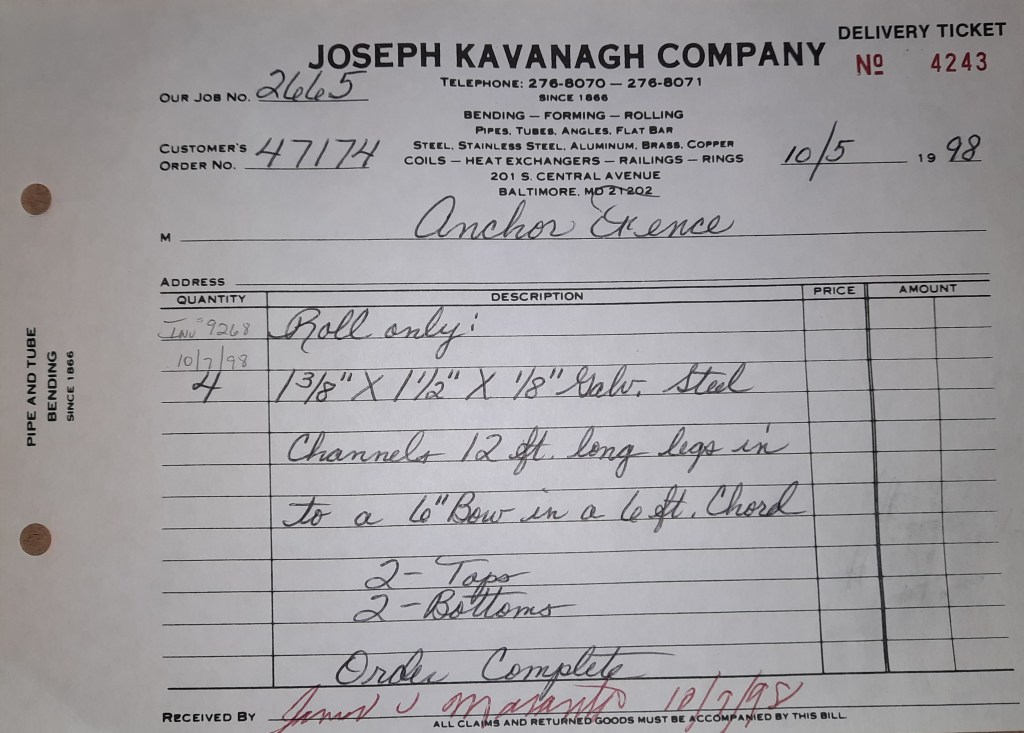 DELIVERY TICKET
JOSEPH KAVANAGH COMPANY
Nº 4243
TELEPHONE: 276-8070 — 276-8071
SINCE 1866
OUR JOB NO. 2665
BENDING — FORMING — ROLLING
PIPES, TUBES, ANGLES, FLAT BAR
CUSTOMER'S ORDER NO. 47174
STEEL, STAINLESS STEEL, ALUMINUM, BRASS, COPPER
COILS — HEAT EXCHANGERS — RAILINGS — RINGS
10/5 1998
201 S. CENTRAL AVENUE
BALTIMORE, MD 21202
M Anchor Fence
ADDRESS
QUANTITY DESCRIPTION PRICE AMOUNT
Inv# 9268 Roll only:
10/7/98
4 1 3/8" X 1 1/2" X 1/8" Galv. Steel
Channels 12 ft. long legs in
to a 6" Bow in a 6 ft. Chord
2 - Tops
2 - Bottoms
Order Complete
RECEIVED BY 10/7/98
ALL CLAIMS AND RETURNED GOODS MUST BE ACCOMPANIED BY THIS BILL
PIPE AND TUBE
BENDING
SINCE 1866